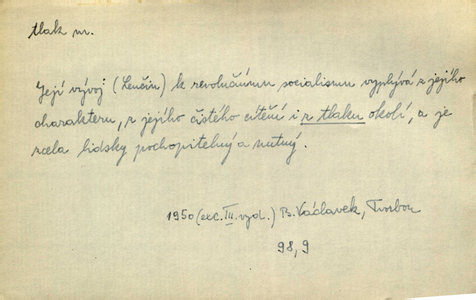 tlak m.
Její vývoj (Lenčin) k revolučnímu socialismu vyplývá z jejího
charakteru, z jejího čistého cítění i z tlaku okolí, a je
zcela lidsky pochopitelný a nutný.
1950 (exc. III. vyd.) B. Václavek, Tvorbou
98, 9